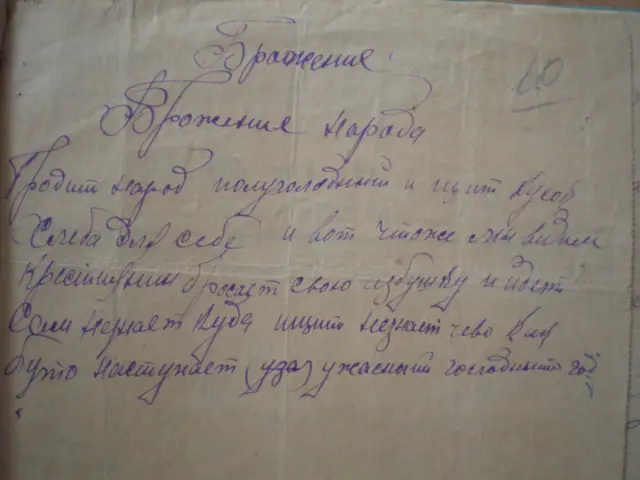 Бражение
20
Вброжение народа
Бродит народ полуголодный и ищит кусок
Хлеба для себе и вот чтоже мы видим
Крестиянин бросает свою избушку и идет
Сам незнает куда ищит незнает чево как
буто наступает (уза) ужасный голодный год